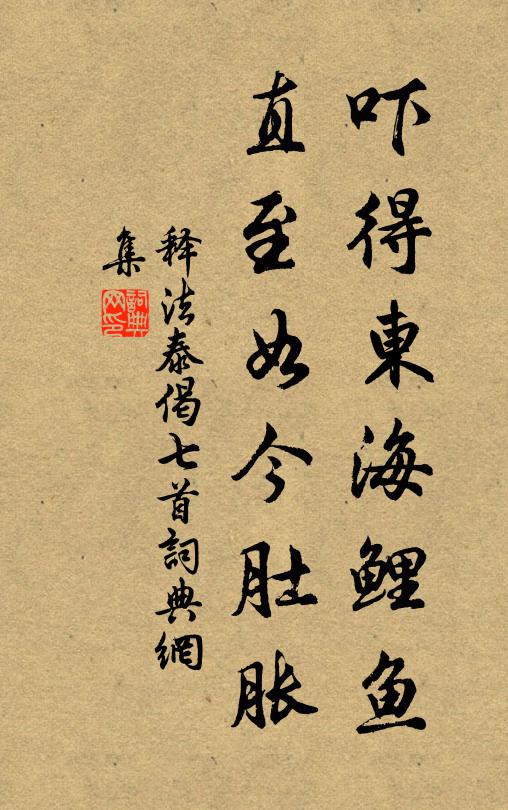 吓得東海鲤鱼
直至如今肚胀
释法泰偈七首詞典網
集
詞典网印